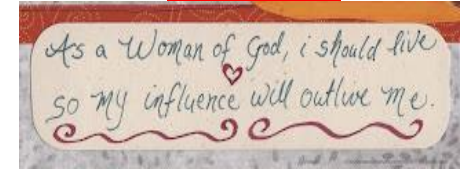 As a Woman of God, i should live
so my influence will outlive me.